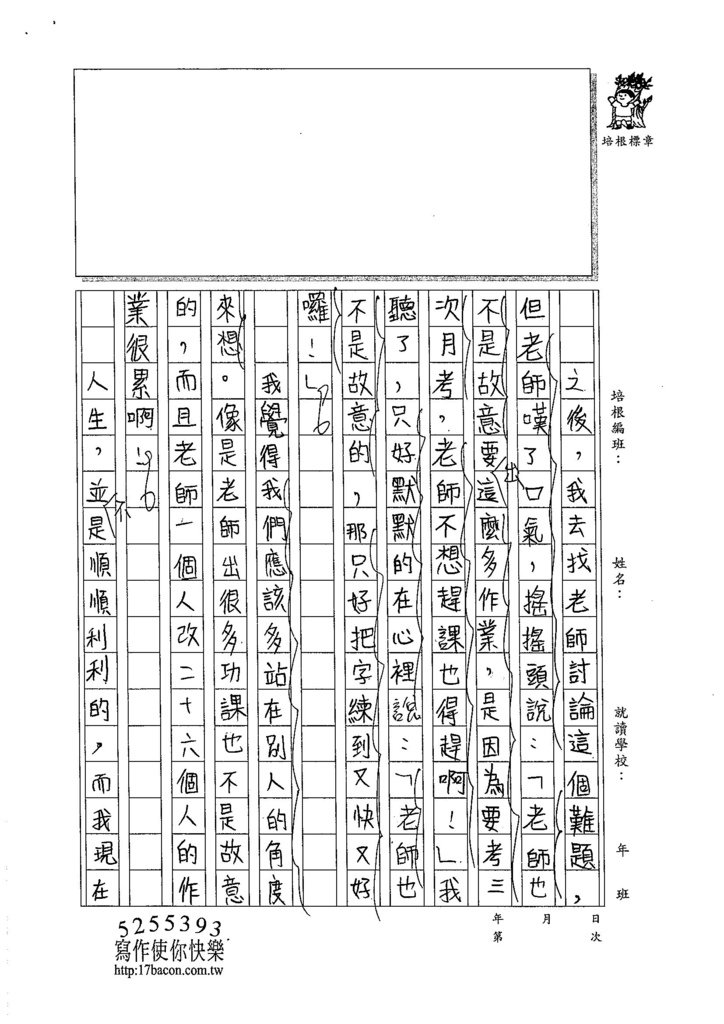 培根標章
培根編班：　姓名：　就讀學校：　年　班
年　月　日
第　次
之後，我去找老師討論這個難題，
但老師嘆了口氣，搖搖頭說：「老師也
不是故意要出這麼多作業，是因為要考三
次月考，老師不想趕課也得趕啊！」我
聽了，只好默默的在心裡說：「老師也
不是故意的，那只好把字練到又快又好
囉！」
我覺得我們應該多站在別人的角度
來想。像是老師出很多功課也不是故意
的，而且老師一個人改二十六個人的作
業很累啊！
人生，並不是順順利利的，而我現在
5255393
寫作使你快樂
http:17bacon.com.tw